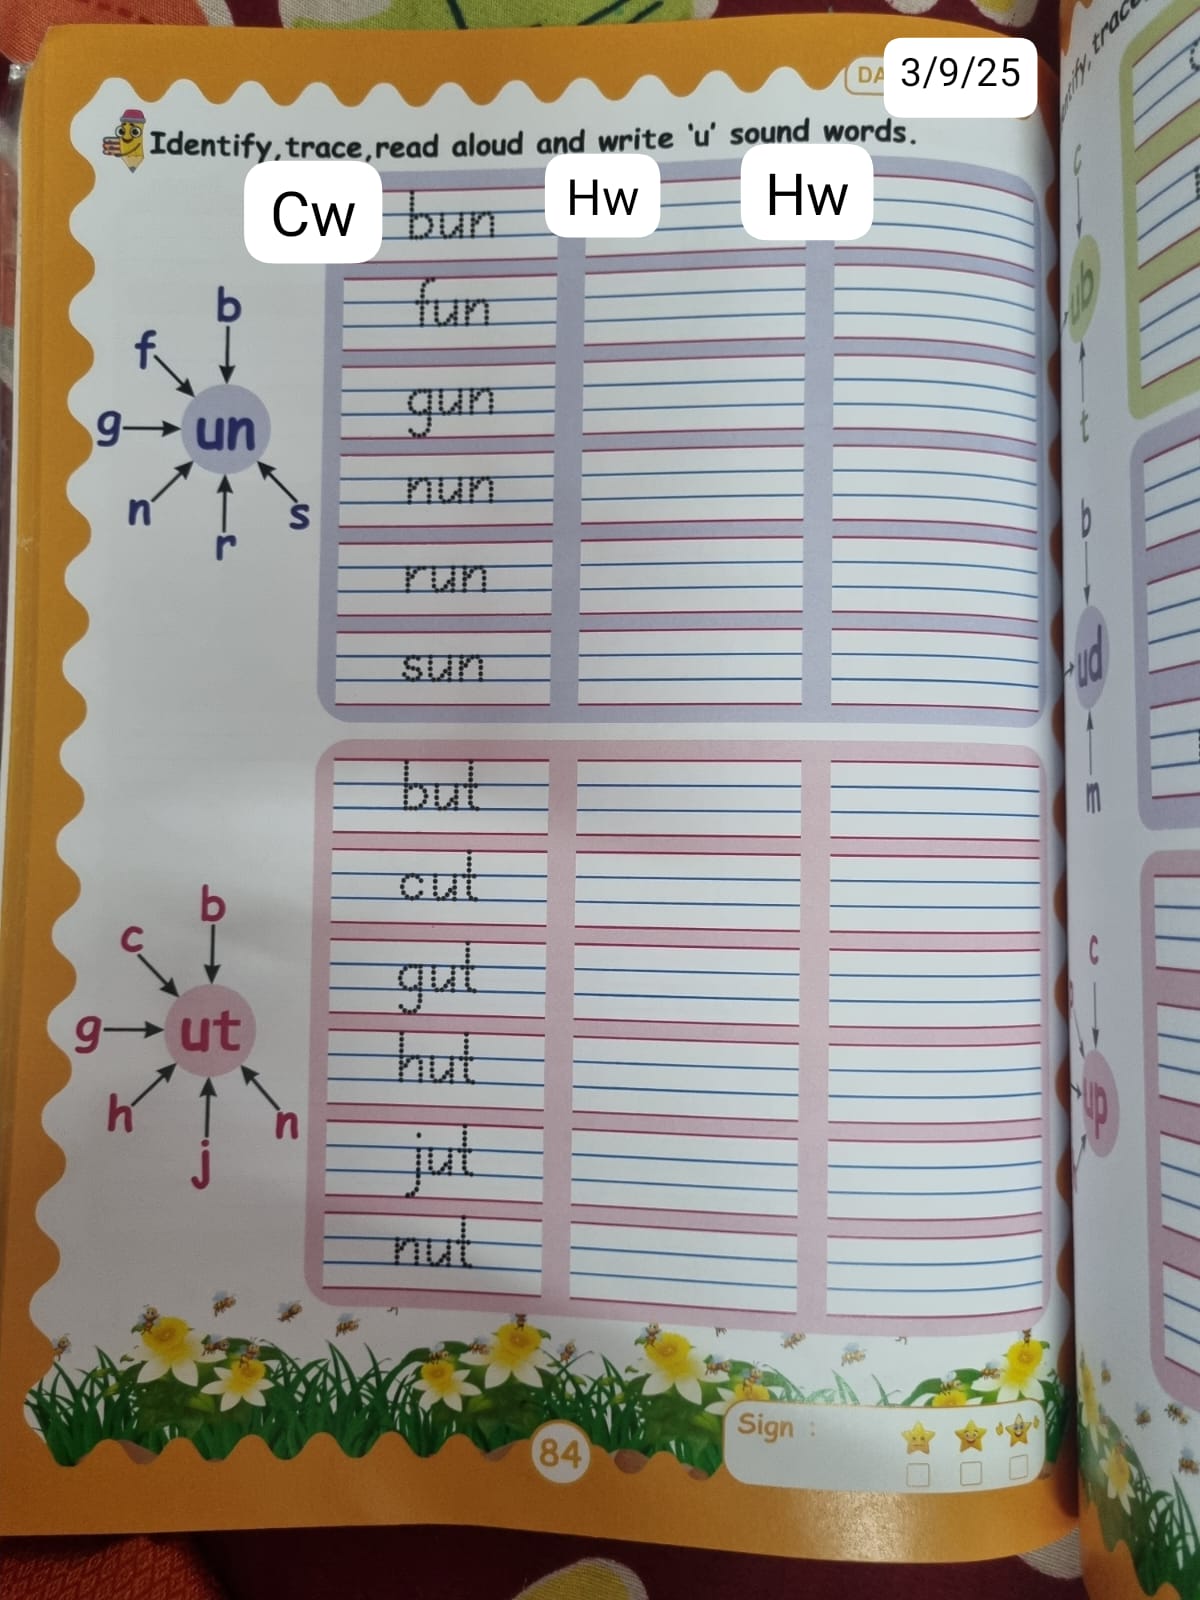 DA 3/9/25
Identify,trace,read aloud and write 'u' sound words.
Cw Hw Hw
bun
fun
gun
nun
run
sun
b
f
g
un
n
s
r
but
cut
gut
hut
jut
nut
b
c
g
ut
h
n
j
Sign :
84
c
ub
t
b
ud
m
c
up